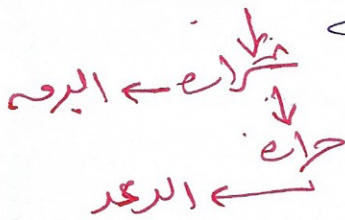 شرارة ← البرق
حرارة
← الرعد